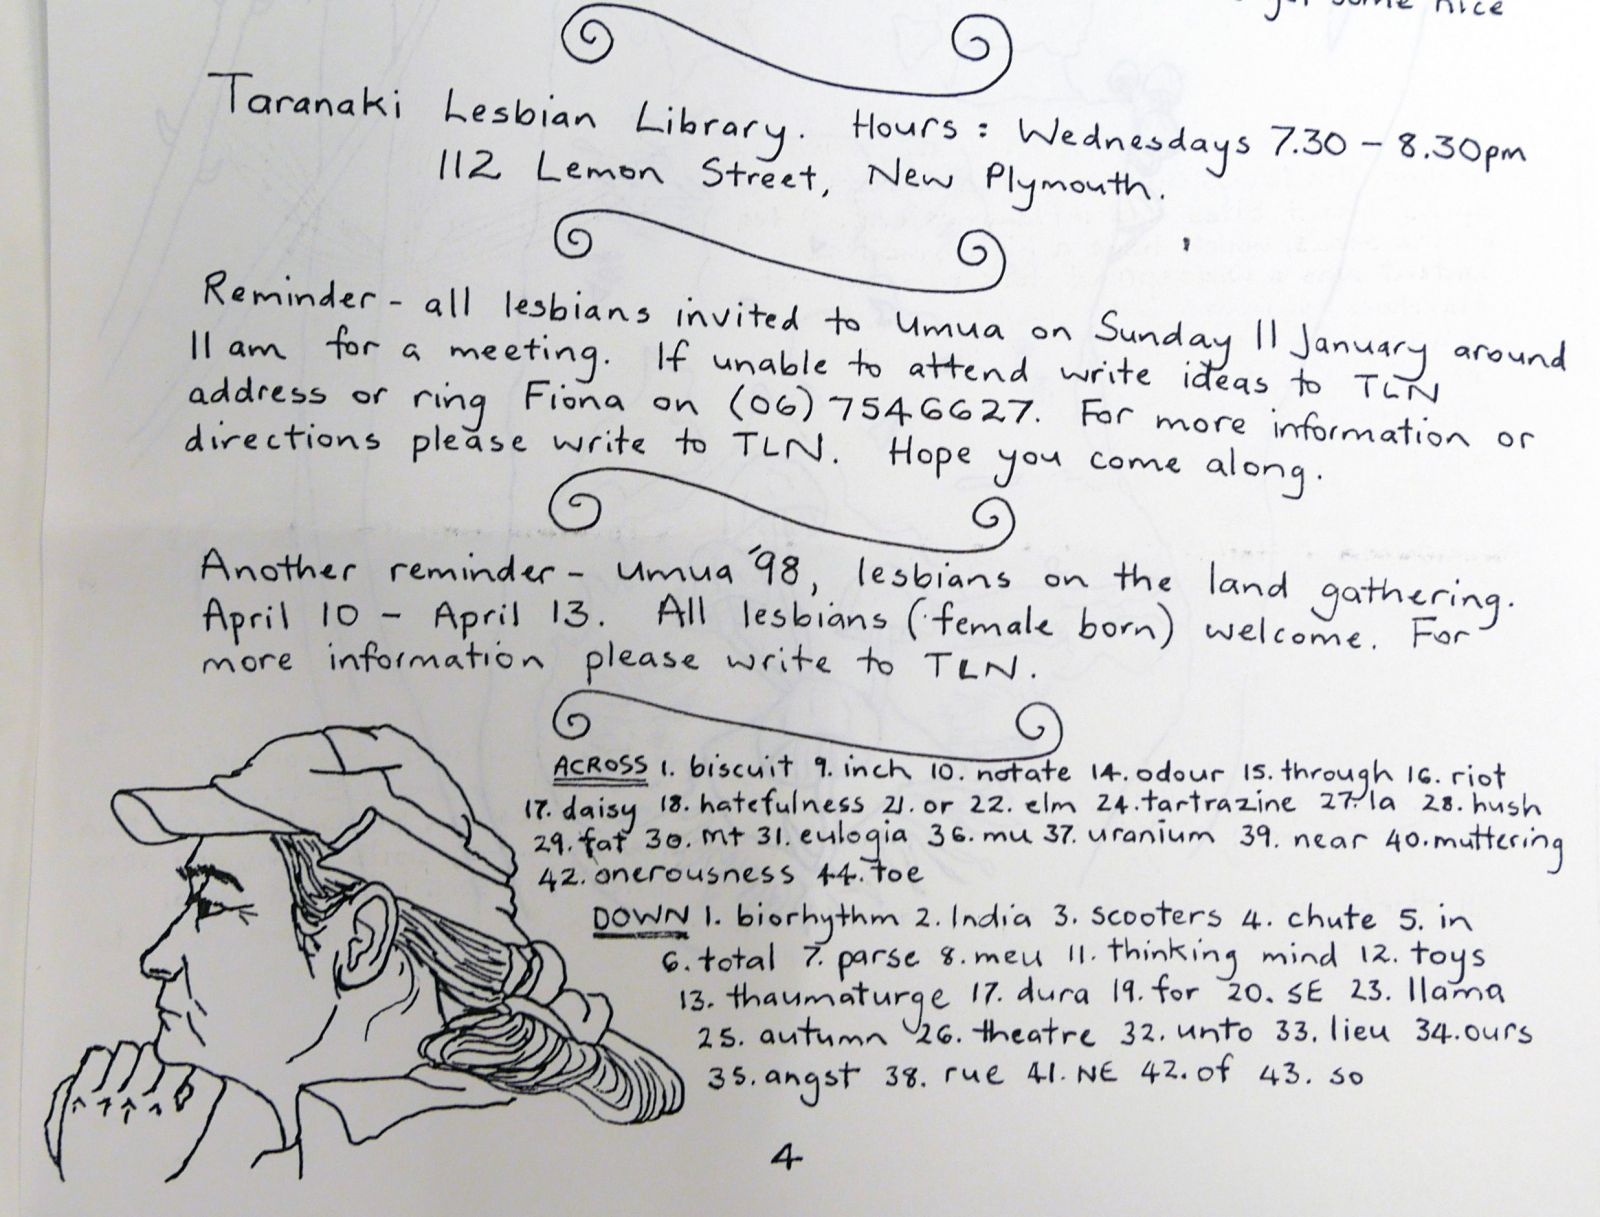 some nice
Taranaki Lesbian Library. Hours: Wednesdays 7.30 - 8.30pm
112 Lemon Street, New Plymouth.
Reminder - all lesbians invited to Umua on Sunday 11 January around
11 am for a meeting. If unable to attend write ideas to TLN
address or ring Fiona on (06) 7546627. For more information or
directions please write to TLN. Hope you come along.
Another reminder - Umua '98, lesbians on the land gathering.
April 10 - April 13. All lesbians (female born) welcome. For
more information please write to TLN.
ACROSS 1. biscuit 9. inch 10. notate 14. odour 15. through 16. riot
17. daisy 18. hatefulness 21. or 22. elm 24. tartrazine 27. la 28. hush
29. fat 30. Mt 31. eulogia 36. mu 37. uranium 39. near 40. muttering
42. onerousness 44. toe
DOWN 1. biorhythm 2. India 3. scooters 4. chute 5. in
6. total 7. parse 8. meu 11. thinking mind 12. toys
13. thaumaturge 17. dura 19. for 20. SE 23. llama
25. autumn 26. theatre 32. unto 33. lieu 34. ours
35. angst 38. rue 41. NE 42. of 43. so
4